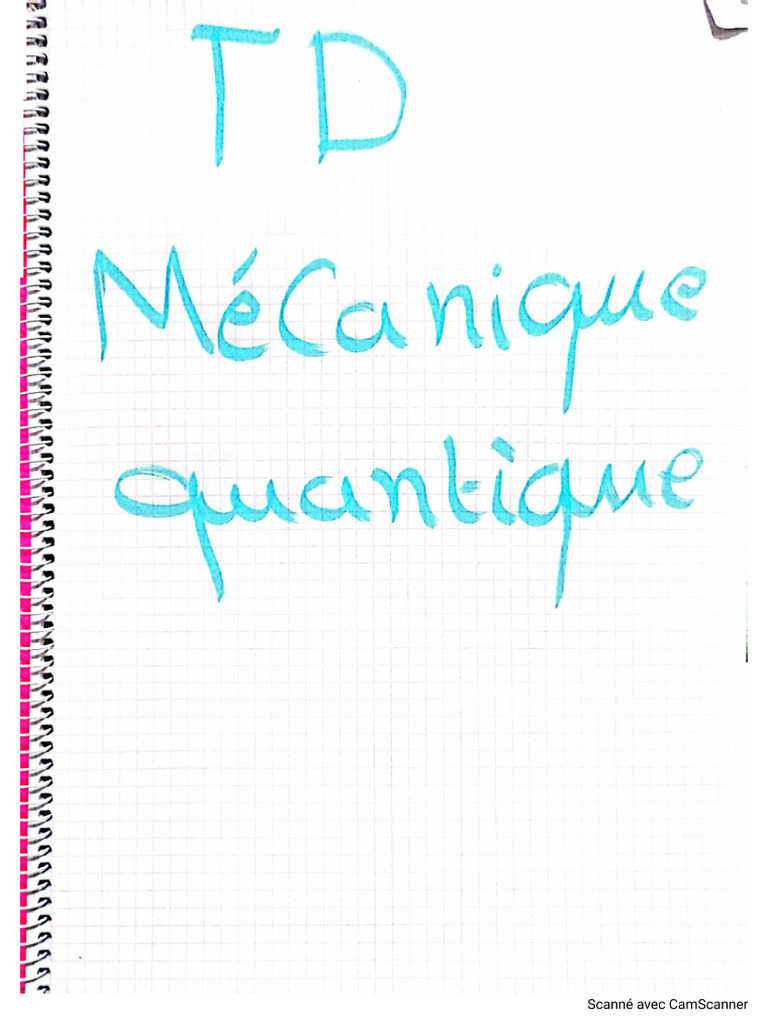 TD
Mécanique
quantique
Scanné avec CamScanner